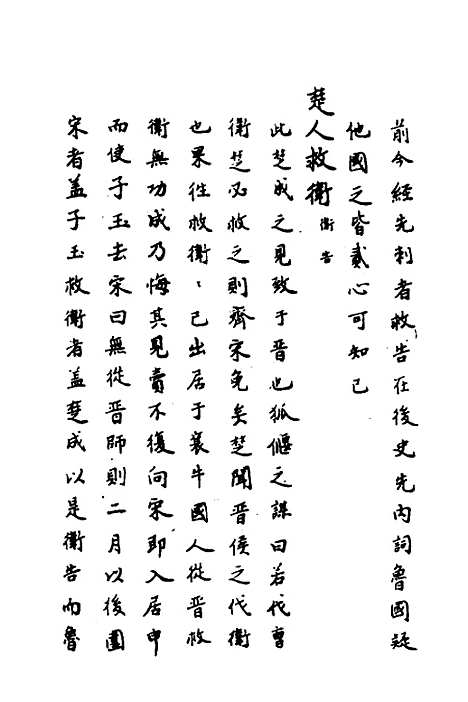 前今經先刺者救告在後史先内詞魯國疑
他國之皆貳心可知已
楚人救衛衛告
此楚成之見致于晋也狐偃之謀曰若伐曹
衛楚必救之則齊宋免矣楚聞晋侯之伐衛
也果往救衛〻已出居于襄牛國人從晋救
衛無功成乃悔其見賣不復向宋即入居申
而使子玉去宋曰無從晋師則二月以後圍
宋者盖子玉救衛者盖楚成以是衛告而魯